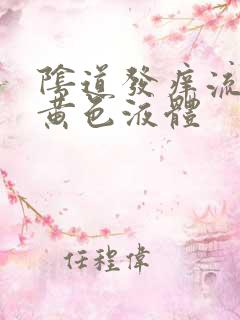 陰道發痒流
黃色液體
任程偉